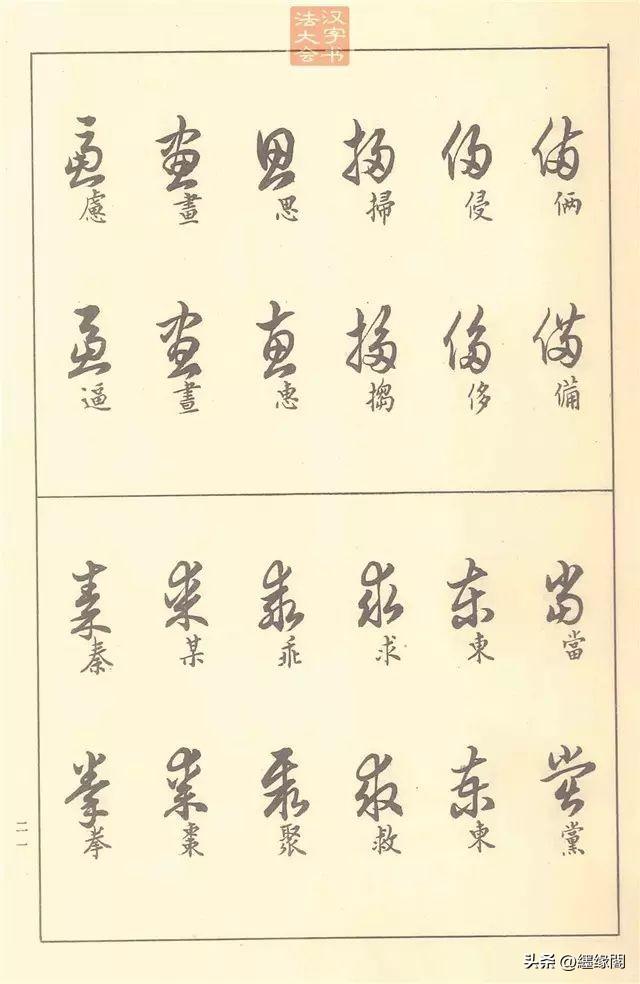 汉字书
法大会
俩 侵 掃 思 畫 慮
備 侈 搊 惠 晝 逼
當 東 求 乖 某 秦
黨 東 救 聚 棗 拳
二一
头条 @纏缘閣